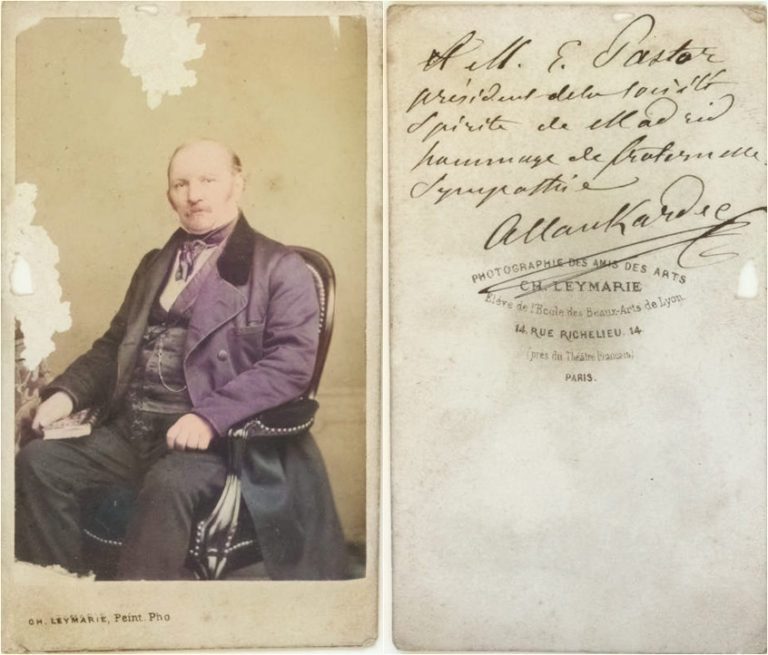 CH. LEYMARIE, Peint. Pho
A M. E. Pastor
président de la société
Spirite de Madrid
hommage de fraternelle
Sympathie
Allan Kardec
PHOTOGRAPHIE DES AMIS DES ARTS
CH. LEYMARIE
Elève de l'Ecole des Beaux-Arts de Lyon
14. RUE RICHELIEU. 14
(près du Théâtre Francais)
PARIS.